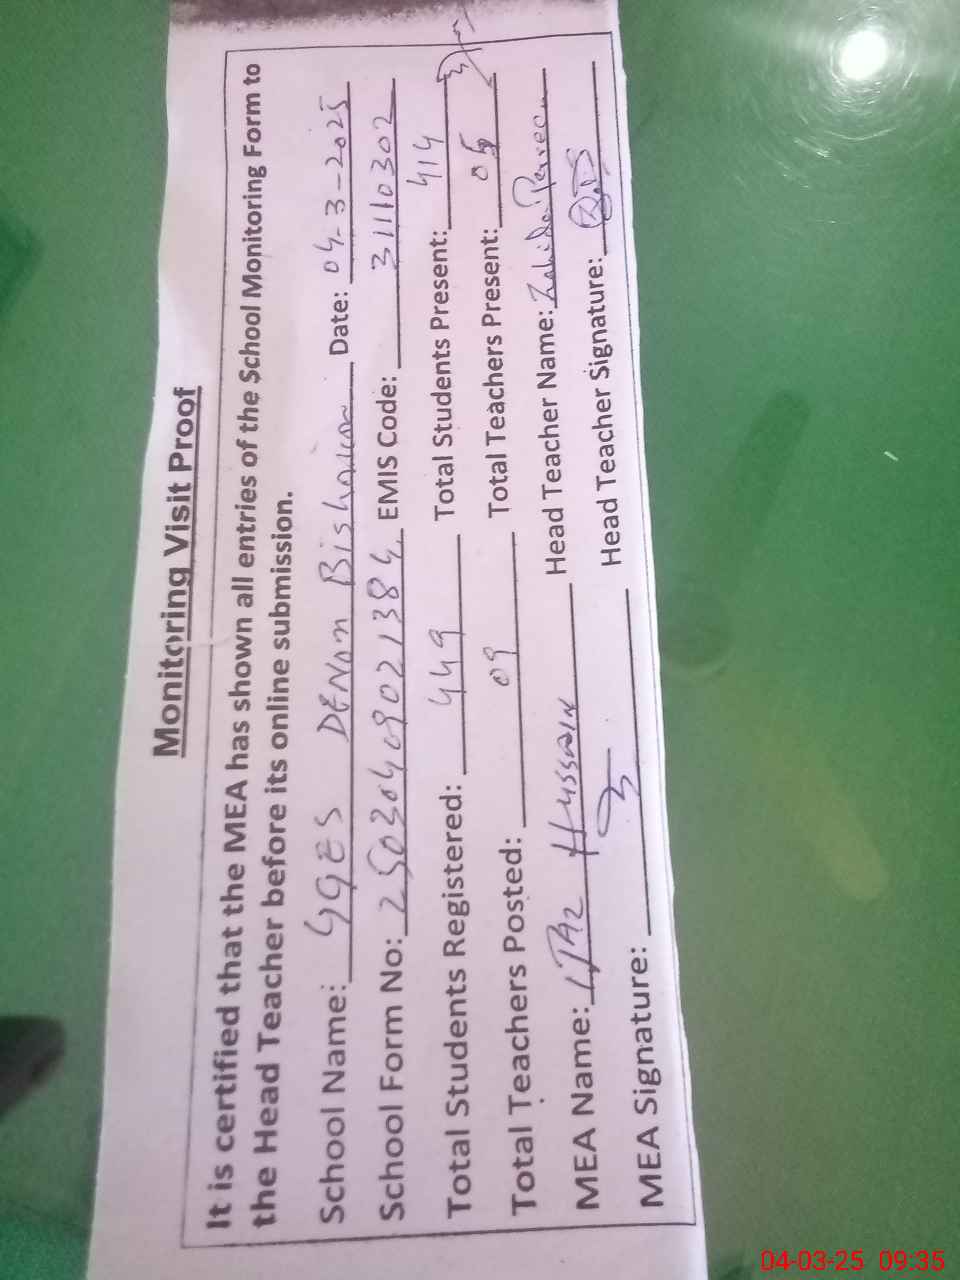 Monitoring Visit Proof
It is certified that the MEA has shown all entries of the School Monitoring Form to
the Head Teacher before its online submission.
School Name: GGES Date: 04-3-2025
School Form No: EMIS Code: 31110302
Total Students Registered: 449 Total Students Present: 414
Total Teachers Posted: 09 Total Teachers Present:
MEA Name: HUSSAIN Head Teacher Name: Zahida
MEA Signature: Head Teacher Signature:
04-03-25 09:35